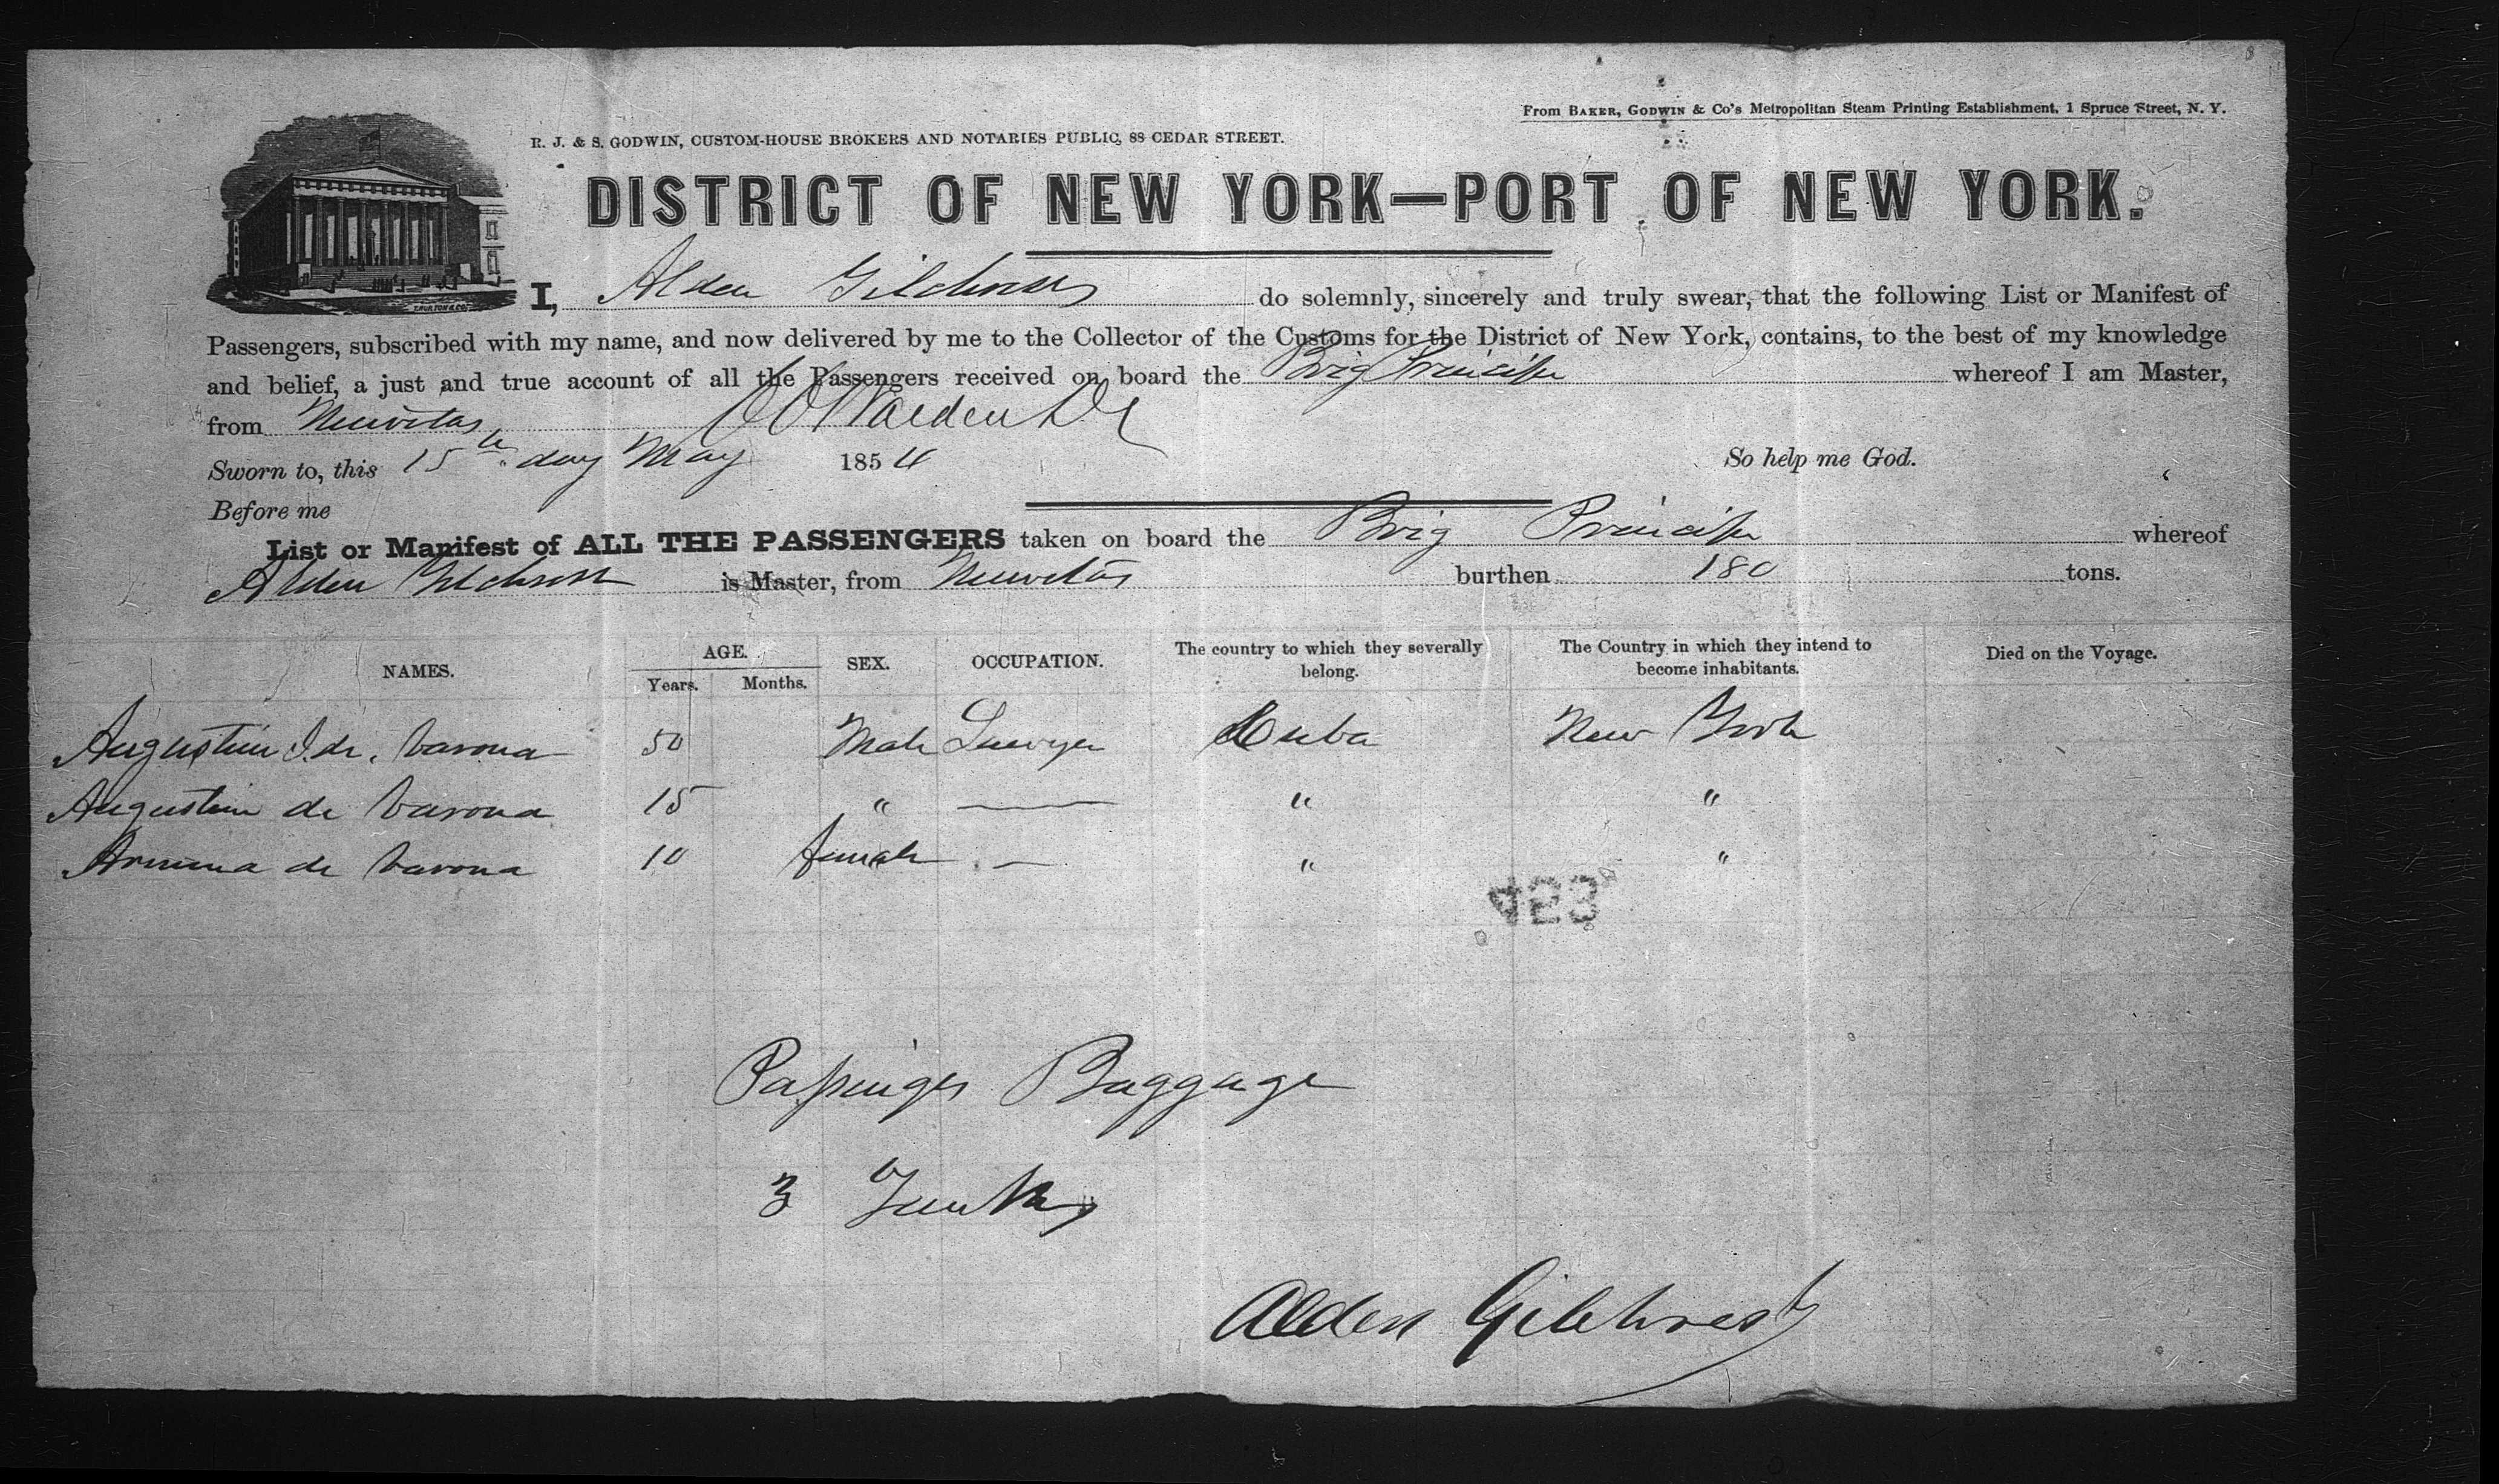 8
From BAKER, GODWIN & Co's Metropolitan Steam Printing Establishment, 1 Spruce Street, N. Y.
R. J. & S. GODWIN, CUSTOM-HOUSE BROKERS AND NOTARIES PUBLIC, 88 CEDAR STREET.
DISTRICT OF NEW YORK—PORT OF NEW YORK.
I, Alden Gilchrest do solemnly, sincerely and truly swear, that the following List or Manifest of
Passengers, subscribed with my name, and now delivered by me to the Collector of the Customs for the District of New York, contains, to the best of my knowledge
and belief, a just and true account of all the Passengers received on board the Brig Principe whereof I am Master,
from Nuevitas
Sworn to, this 15th day May 1854 So help me God.
Before me
List or Manifest of ALL THE PASSENGERS taken on board the Brig Principe whereof
Alden Gilchrest is Master, from Nuevitas burthen 180 tons.
NAMES. AGE. Years. Months. SEX. OCCUPATION. The country to which they severally belong. The Country in which they intend to become inhabitants. Died on the Voyage.
Augustin J. de. Varona 50 Male Lawyer Cuba New York
Augustin de Varona 15 " — " "
de Varona 10 female — " "
423
Passenger Baggage
3 Trunks
Alden Gilchrest